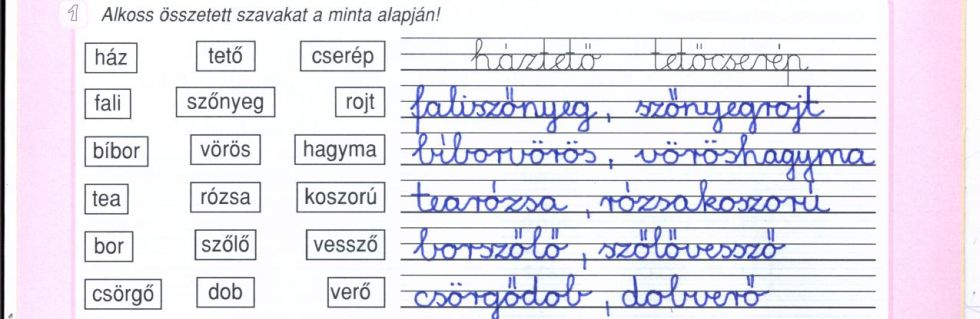 1 Alkoss összetett szavakat a minta alapján!
ház tető cserép háztető tetőcserép
fali szőnyeg rojt faliszőnyeg, szőnyegrojt
bíbor vörös hagyma bíborvörös, vöröshagyma
tea rózsa koszorú tearózsa, rózsakoszorú
bor szőlő vessző borszőlő, szőlővessző
csörgő dob verő csörgődob, dobverő